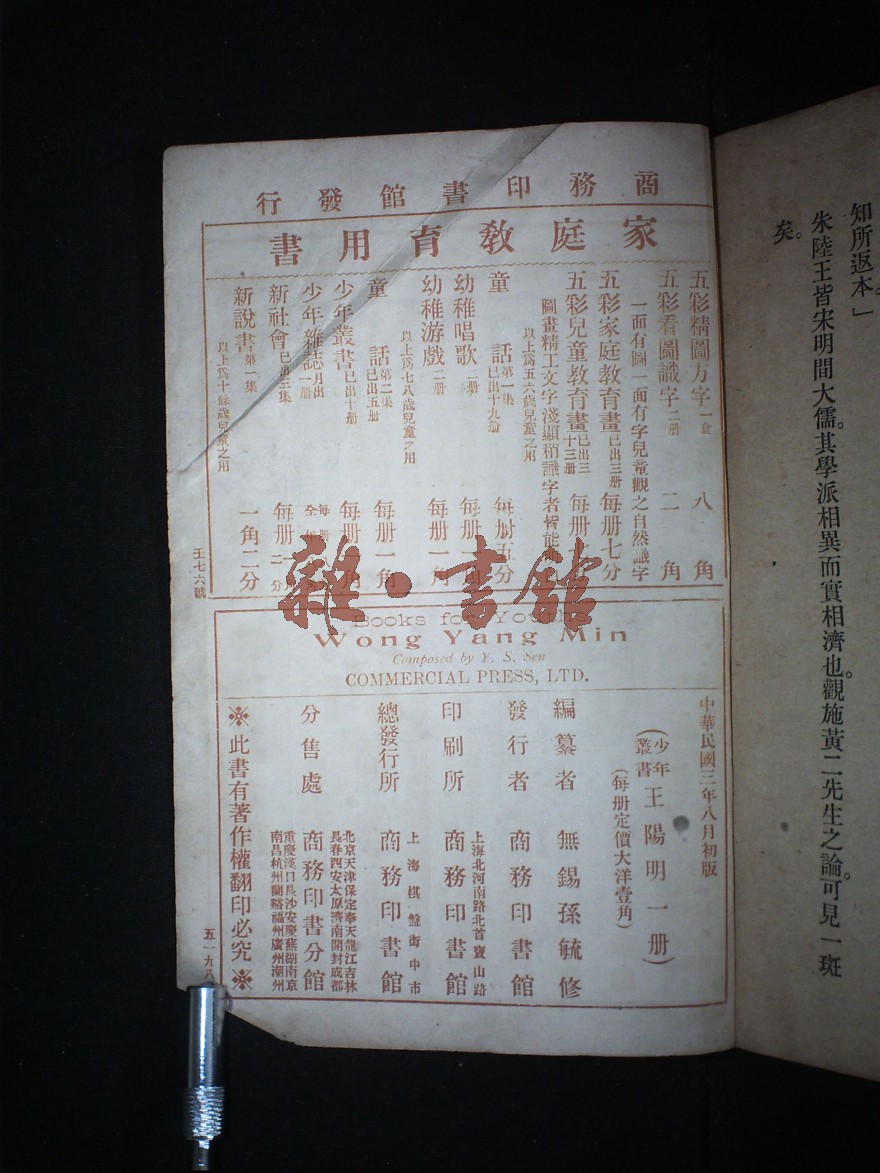 知所返本。」
朱陸王皆宋明間大儒。其學派相異而實相濟也。觀施黃二先生之論。可見一斑
矣。
商務印書館發行
家庭教育用書
五彩精圖方字 一盒 八角
五彩看圖識字 二册 二角
一面有圖一面有字兒童觀之自然識字
五彩家庭教育畫 已出三册 每册七分
五彩兒童教育畫 已出三十三册 每册
圖畫精工文字淺顯稍識字者皆能
以上爲五六歲兒童之用
童話 第一集 已出十九册 每册五分
幼稚唱歌 一册 每册一角
幼稚游戲 二册 每册一角
以上爲七八歲兒童之用
童話 第二集 已出五册 每册一角
少年叢書 已出十册 每册一角
少年雜誌 月出一册 每册
新社會 已出三集 每册
新說書 第一集 一角二分
以上爲十餘歲兒童之用
王七六號
雜·書館
Books for Youths
Wong Yang Min
Composed by Y. S. Sen
COMMERCIAL PRESS, LTD.
中華民國三年八月初版
(少年叢書 王陽明一册)
(每册定價大洋壹角)
編纂者 無錫孫毓修
發行者 商務印書館
上海北河南路北首寶山路
印刷所 商務印書館
上海棋盤街中市
總發行所 商務印書館
北京天津保定奉天龍江吉林
長春西安太原濟南開封成都
分售處 商務印書分館
重慶漢口長沙安慶蕪湖南京
南昌杭州蘭谿福州廣州潮州
※此書有著作權翻印必究※
五一九八